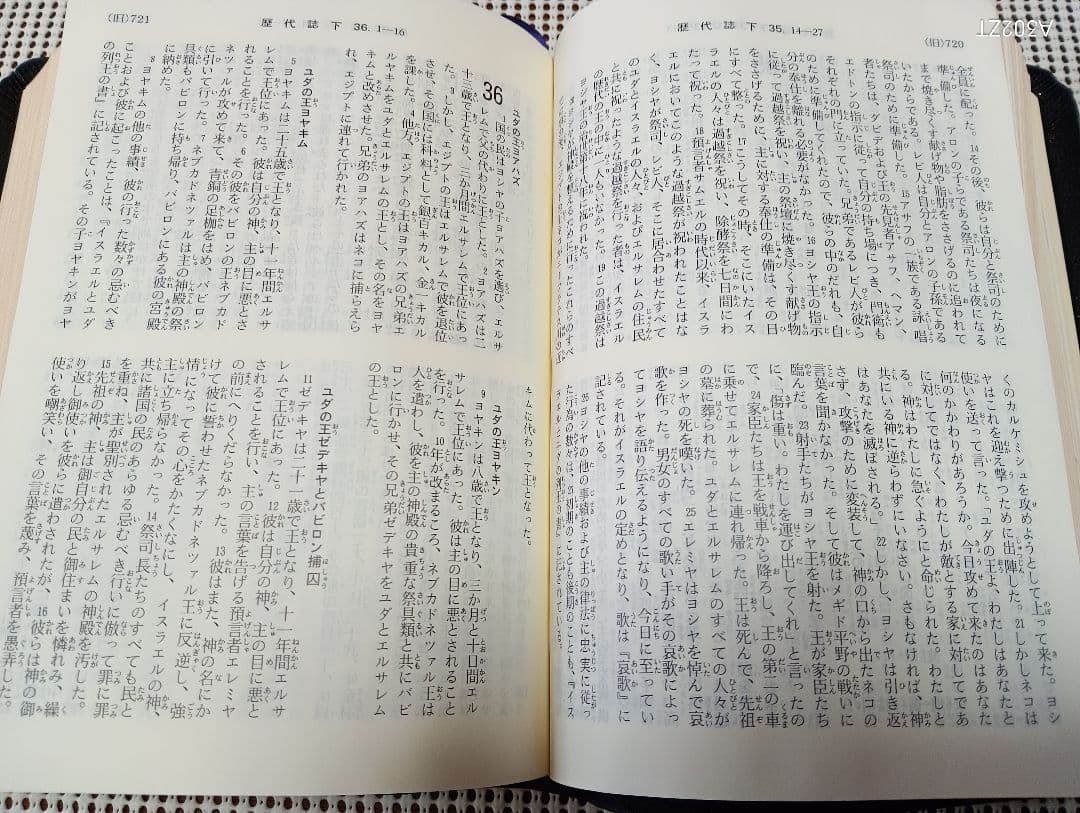 A302ZT
(旧)720
歴代誌下 35.14―27
全員に配った。14その後、彼らは自分と祭司のために
準備した。アロンの子らである祭司たちは夜になる
まで焼き尽くす献げ物や脂肪をささげるのに追われて
いたからである。レビ人は自分とアロンの子孫である
祭司のために準備した。15アサフの一族である詠唱
者たちは、ダビデおよび王の先見者アサフ、ヘマン、
エドトンの指示に従って自分の持ち場につき、門衛も
それぞれの門に立っていた。兄弟であるレビ人が彼ら
のために準備してくれたので、彼らの中のだれも、自
分の奉仕を離れる必要がなかった。16ヨシヤ王の指示
に従って過越祭を祝い、主の祭壇に焼き尽くす献げ物
をささげるために、主に対する奉仕の準備は、その日
にすべて整った。17こうしてその時、そこにいたイス
ラエルの人々は過越祭を祝い、除酵祭を七日間にわ
たって祝った。18預言者サムエルの時代以来、イスラ
エルにおいてこのような過越祭が祝われたことはな
く、ヨシヤが祭司、レビ人、そこに居合わせたすべて
のユダとイスラエルの人々、およびエルサレムの住民
と共に祝ったような過越祭を行った者は、イスラエル
の歴代の王の中に一人もいなかった。19この過越祭は
ヨシヤの治世第十八年に祝われた。
くのカルケミシュを攻めようとして上って来た。ヨシ
ヤはこれを迎え撃つために出陣した。21しかしネコは
使いを送って言った。「ユダの王よ、わたしはあなたと
何のかかわりがあろうか。今日攻めて来たのはあなた
に対してではなく、わたしが敵とする家に対してであ
る。神はわたしに急ぐようにと命じられた。わたしと
共にいる神に逆らわずにいなさい。さもなければ、神
はあなたを滅ぼされる。」22しかし、ヨシヤは引き返
さず、攻撃のために変装して、神の口から出たネコの
言葉を聞かなかった。そして彼はメギド平野の戦いに
臨んだ。23射手たちがヨシヤ王を射た。王が家臣たち
に、「傷は重い。わたしを運び出してくれ」と言ったの
で、24家臣たちは王を戦車から降ろし、王の第二の車
に乗せてエルサレムに連れ帰った。王は死んで、先祖
の墓に葬られた。ユダとエルサレムのすべての人々が
ヨシヤの死を嘆いた。25エレミヤはヨシヤを悼んで哀
歌を作った。男女のすべての歌い手がその哀歌によっ
てヨシヤを語り伝えるようになり、今日に至ってい
る。それがイスラエルの定めとなり、歌は『哀歌』に
記されている。
26ヨシヤの他の事績および主の律法に忠実に従っ
た行為の数々は、27初期のことも後期のことも、『イス
(旧)721
歴代誌下 36.1―16
ユダの王ヨアハズ
36
1国の民はヨシヤの子ヨアハズを選び、エルサ
レムで父の代わりに王とした。2ヨアハズは二
十三歳で王となり、三か月間エルサレムで王位にあっ
た。3しかし、エジプトの王はエルサレムで彼を退位
させ、その国には科料として銀百キカル、金一キカル
を課した。4他方、エジプトの王はヨアハズの兄弟エ
ルヤキムをユダとエルサレムの王とし、その名をヨヤ
キムと改めさせた。兄弟のヨアハズはネコに捕らえら
れ、エジプトに連れて行かれた。
ユダの王ヨヤキム
5ヨヤキムは二十五歳で王となり、十一年間エルサ
レムで王位にあった。彼は自分の神、主の目に悪とさ
れることを行った。6その彼をバビロンの王ネブカド
ネツァルが攻めて来て、青銅の足枷をはめ、バビロン
に引いて行った。7ネブカドネツァルは主の神殿の祭
具類もバビロンに持ち帰り、バビロンにある彼の宮殿
に納めた。
8ヨヤキムの他の事績、彼の行った数々の忌むべき
ことおよび彼に起こったことは、『イスラエルとユダ
の列王の書』に記されている。その子ヨヤキンがヨヤ
キムに代わって王となった。
ユダの王ヨヤキン
9ヨヤキンは八歳で王となり、三か月と十日間エル
サレムで王位にあった。彼は主の目に悪とされること
を行った。10年が改まるころ、ネブカドネツァル王は
人を遣わし、彼を主の神殿の貴重な祭具類と共にバビ
ロンに行かせ、その兄弟ゼデキヤをユダとエルサレム
の王とした。
ユダの王ゼデキヤとバビロン捕囚
11ゼデキヤは二十一歳で王となり、十一年間エルサ
レムで王位にあった。12彼は自分の神、主の目に悪と
されることを行い、主の言葉を告げる預言者エレミヤ
の前にへりくだらなかった。13彼はまた、神の名にか
けて彼に誓わせたネブカドネツァル王に反逆し、強
情になってその心をかたくなにし、イスラエルの神、
主に立ち帰らなかった。14祭司長たちのすべても民と
共に諸国の民のあらゆる忌むべき行いに倣って罪に罪
を重ね、主が聖別されたエルサレムの神殿を汚した。
15先祖の神、主は御自分の民と御住まいを憐れみ、繰
り返し御使いを彼らに遣わされたが、16彼らは神の御
使いを嘲笑い、その言葉を蔑み、預言者を愚弄した。